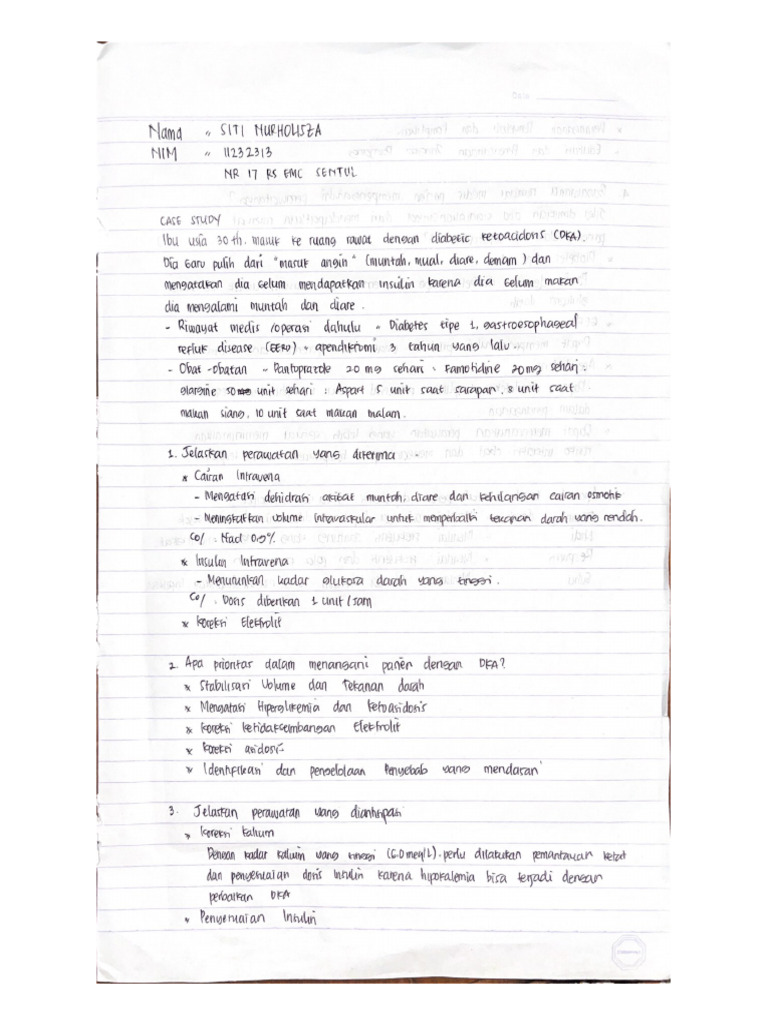 Nama : SITI NURHOLISZA
NIM : 11232313
NR 17 RS EMC SENTUL
CASE STUDY
Ibu usia 30 th, masuk ke ruang rawat dengan diabetic ketoacidosis (DKA).
Dia baru pulih dari "masuk angin" (muntah, mual, diare, demam) dan
mengatakan dia belum mendapatkan insulin karena dia belum makan
dia mengalami muntah dan diare.
- Riwayat medis /operasi dahulu = Diabetes tipe 1, gastroesophageal
refluk disease (GERD) + apendiktomi 3 tahun yang lalu.
- Obat-obatan = Pantoprazole 20 mg sehari : Famotidine 20 mg sehari :
glargine 50 unit sehari : Aspart 5 unit saat sarapan, 8 unit saat
makan siang, 10 unit saat makan malam.
1. Jelaskan perawatan yang diterima
* Cairan Intravena
- Mengatasi dehidrasi akibat muntah, diare dan kehilangan cairan osmotik
- Meningkatkan volume Intravaskular untuk memperbaiki tekanan darah yang rendah.
Co/ : Nacl 0,9%
* Insulin Intravena
- Menurunkan kadar glukosa darah yang tinggi.
Co/ : Dosis diberikan 1 unit/jam
* Koreksi Elektrolit
2. Apa prioritas dalam menangani pasien dengan DKA?
* Stabilisasi Volume dan Tekanan darah
* Mengatasi Hiperglikemia dan Ketoasidosis
* Koreksi ketidakseimbangan Elektrolit
* Koreksi asidosis
* Identifikasi dan pengelolaan Penyebab yang mendasari
3. Jelaskan perawatan yang diantisipasi
* Koreksi kalium
Dengan kadar kalium yang tinggi (6.0 meq/L). perlu dilakukan pemantauan ketat
dan penyesuaian dosis Insulin karena hipokalemia bisa terjadi dengan
perbaikan DKA
* Penyesuaian Insulin